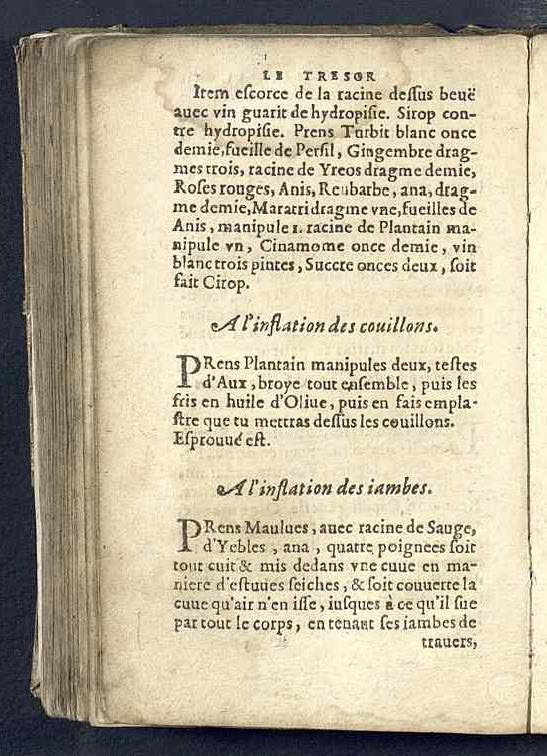 LE TRESOR
Item eſcorce de la racine deſſus beuë
auec vin guarit de hydropiſie. Sirop con-
tre hydropiſie. Prens Turbit blanc once
demie, fueille de Perſil, Gingembre drag-
mes trois, racine de Yreos dragme demie,
Roſes rouges, Anis, Reubarbe, ana, drag-
me demie, Maratri dragme vne, fueilles de
Anis, manipule 1. racine de Plantain ma-
nipule vn, Cinamome once demie, vin
blanc trois pintes, Succre onces deux, ſoit
fait Cirop.
A l'inflation des couillons.
PRens Plantain manipules deux, teſtes
d'Aux, broye tout enſemble, puis les
fris en huile d'Oliue, puis en fais empla-
ſtre que tu mettras deſſus les couillons.
Eſprouué eſt.
A l'inflation des iambes.
PRens Maulues, auec racine de Sauge,
d'Yebles, ana, quatre poignees ſoit
tout cuit & mis dedans vne cuue en ma-
niere d'eſtuues ſeiches, & ſoit couuerte la
cuue qu'air n'en iſſe, iuſques à ce qu'il ſue
par tout le corps, en tenant ſes iambes de
trauers,